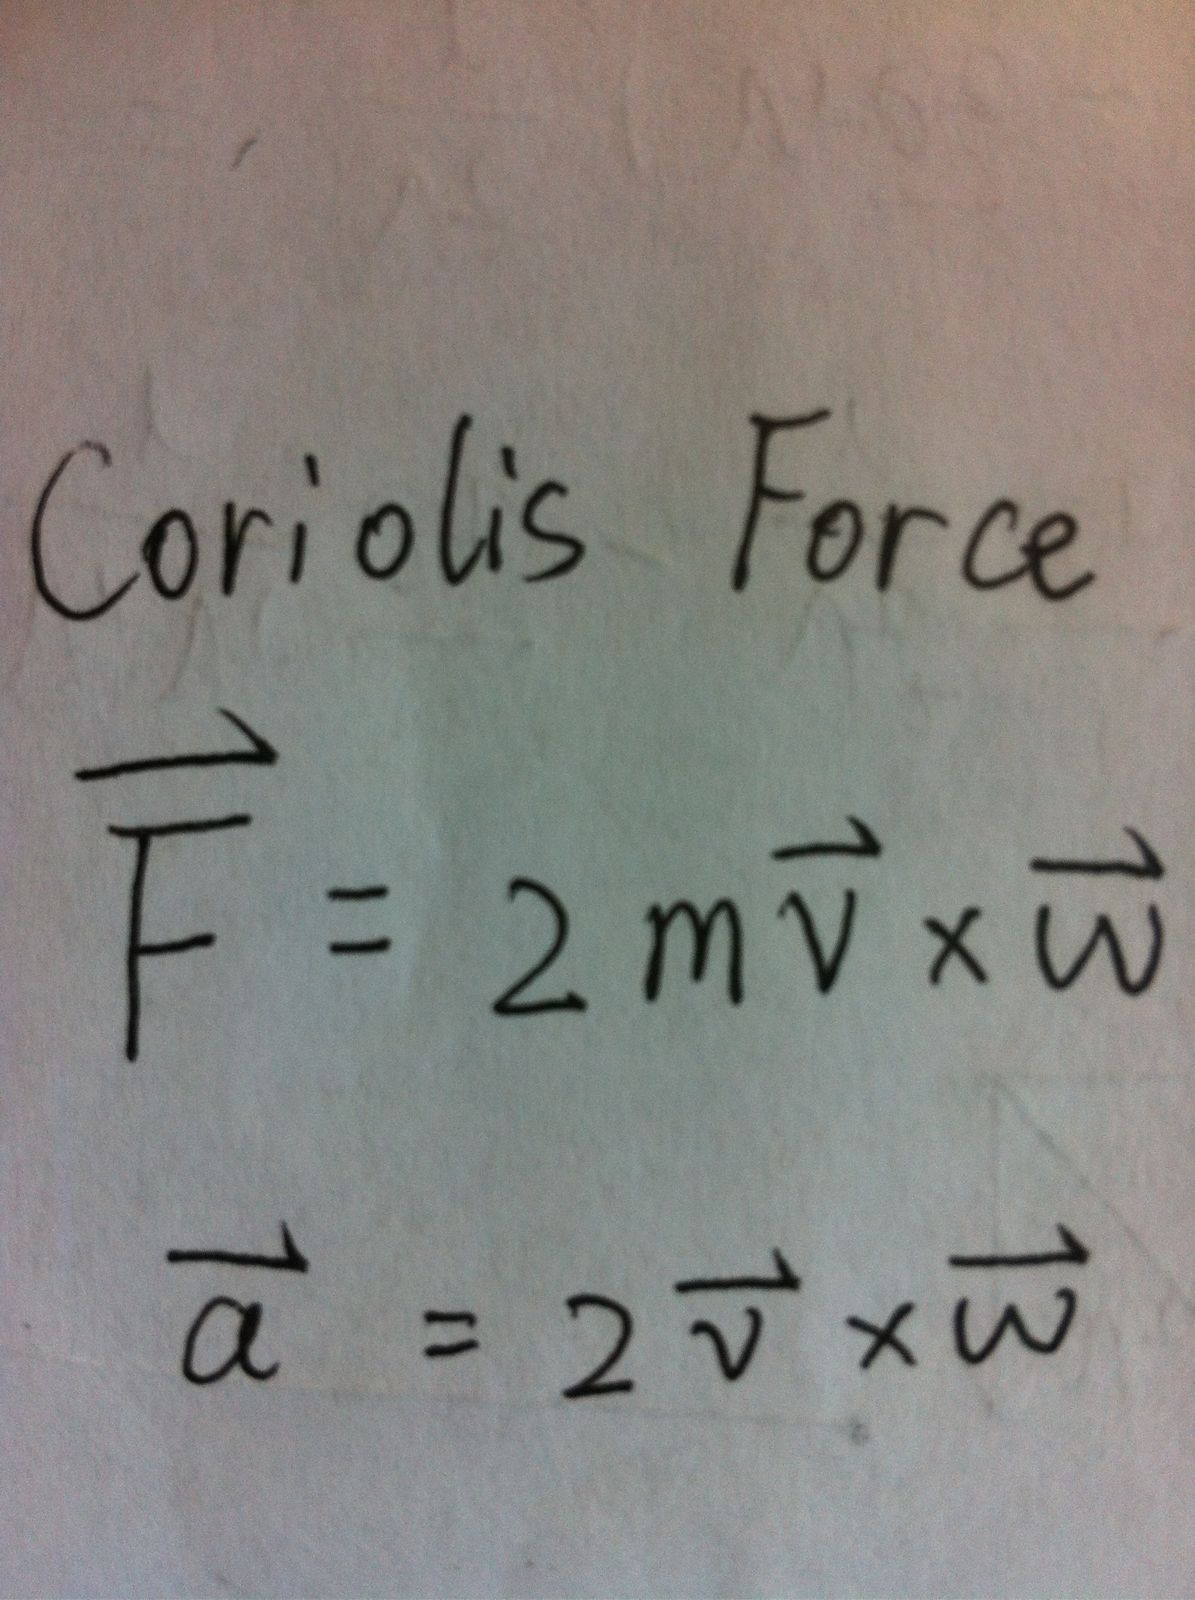 Coriolis Force
F⃗ = 2 m v⃗ × ω⃗
a⃗ = 2 v⃗ × ω⃗